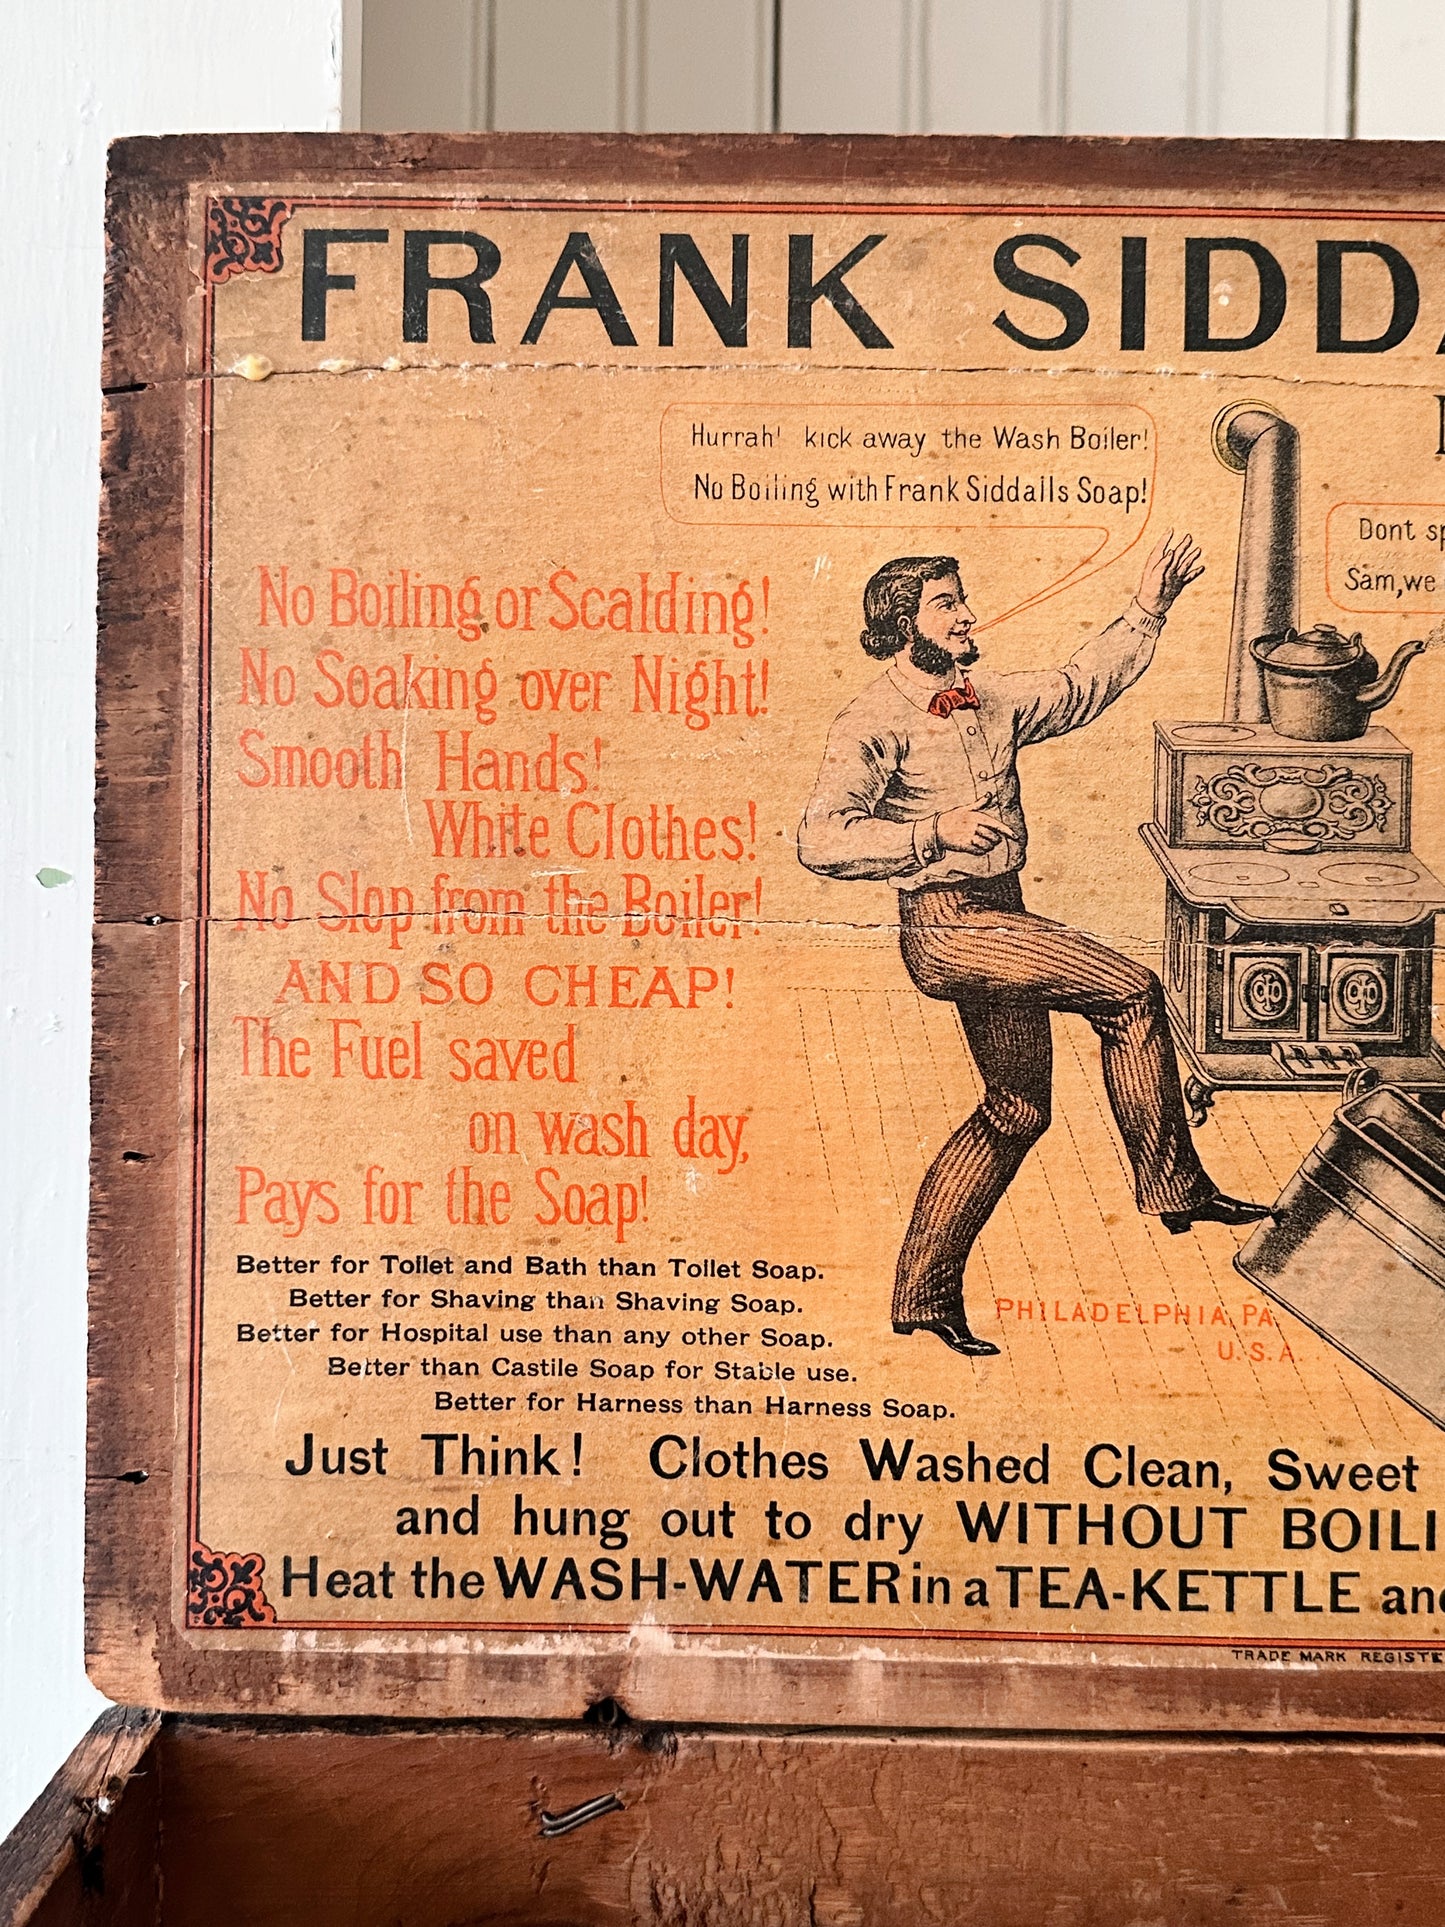 FRANK SIDD
Hurrah! kick away the Wash Boiler!
No Boiling with Frank Siddalls Soap!
Dont
Sam, we
No Boiling or Scalding!
No Soaking over Night!
Smooth Hands!
White Clothes!
No Slop from the Boiler!
AND SO CHEAP!
The Fuel saved
on wash day,
Pays for the Soap!
Better for Toilet and Bath than Toilet Soap.
Better for Shaving than Shaving Soap.
Better for Hospital use than any other Soap.
Better than Castile Soap for Stable use.
Better for Harness than Harness Soap.
PHILADELPHIA, PA.
U.S.A.
Just Think! Clothes Washed Clean, Sweet
and hung out to dry WITHOUT BOILI
Heat the WASH-WATER in a TEA-KETTLE and
TRADE MARK REGISTE